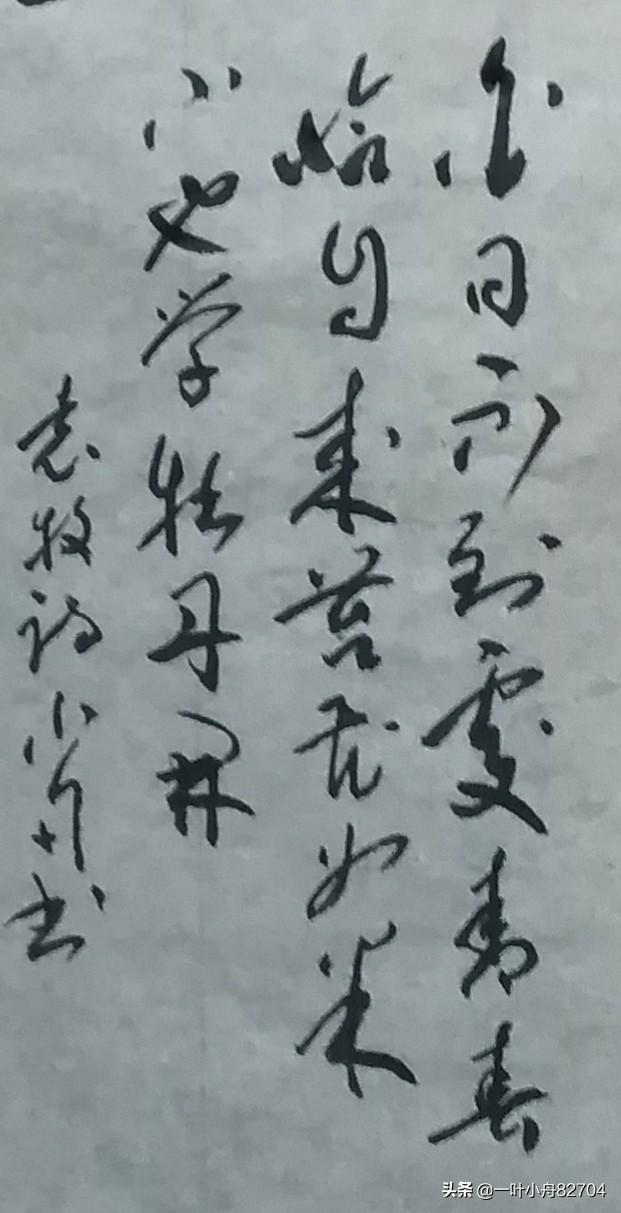 白日不到處青春
恰自来苔花如米
小也学牡丹开
袁枚诗小舟书
头条 @一叶小舟82704